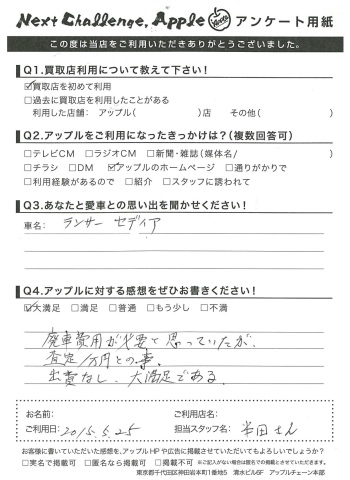 Next Challenge, Apple アンケート用紙
この度は当店をご利用いただきありがとうございました。
Q1.買取店利用について教えて下さい！
☑買取店を初めて利用
□過去に買取店を利用したことがある
利用した店舗： アップル（ ）店 その他（ ）
Q2.アップルをご利用になったきっかけは？（複数回答可）
□テレビCM □ラジオCM □新聞・雑誌（媒体名/ ）
□チラシ □DM ☑アップルのホームページ □通りがかりで
□利用経験があるので □紹介 □スタッフに誘われて
Q3.あなたと愛車との思い出を聞かせください！
車名： ランサー セディア
Q4.アップルに対する感想をぜひお書きください！
☑大満足 □満足 □普通 □もう少し □不満
廃車費用が必要と思っていたが、
査定1万円との事。
出費なし、大満足である。
お名前： ご利用店名：
ご利用日： 2015.5.25 担当スタッフ名： 半田さん
お客様に書いていただいた感想を、アップルHPや広告に掲載させていただいてもよろしいでしょうか？
□実名で掲載可 □匿名なら掲載可 □掲載不可 ※ご記入がない場合は匿名での掲載とさせていただきます。
東京都千代田区神田岩本町1番地5 清水ビル6F アップルチェーン本部